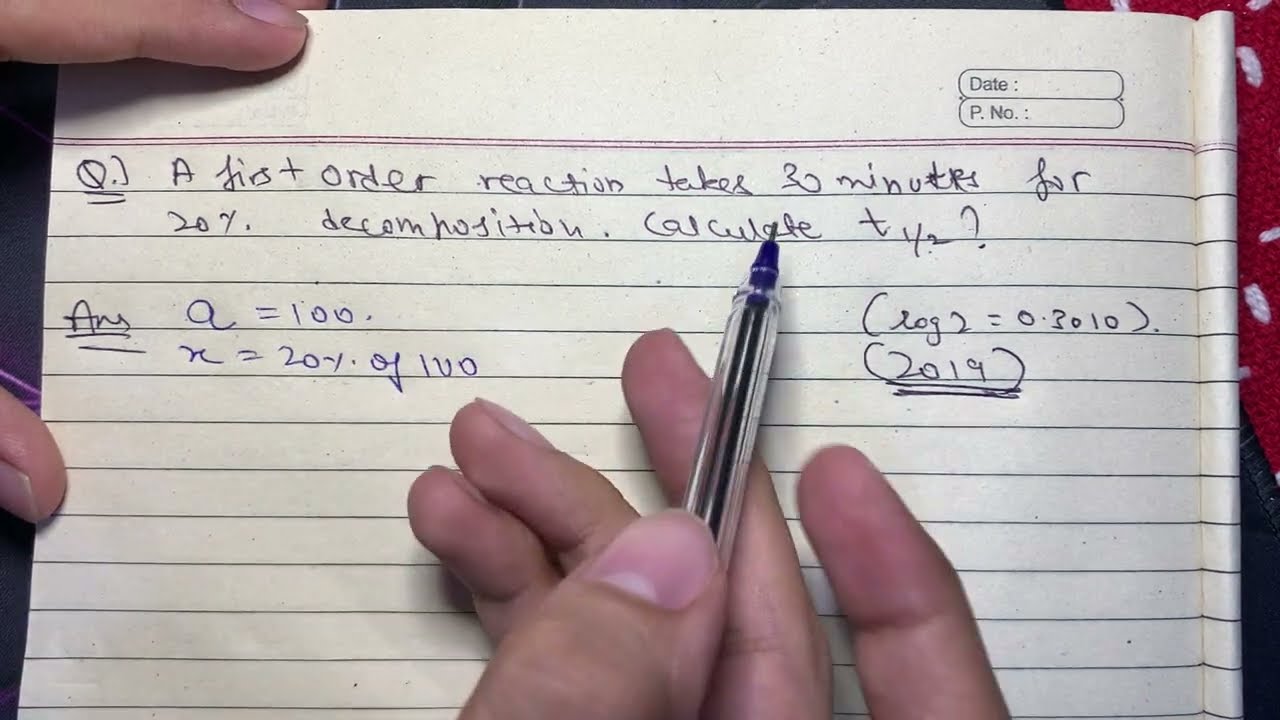 Date :
P. No. :
Q.) A first order reaction takes 30 minutes for
20%. decomposition. Calculate t1/2?
Ans a = 100.
(log2 = 0.3010).
x = 20%. of 100
(2019)